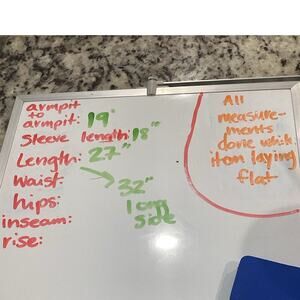 armpit
to
armpit: 19"
Sleeve length: 18"
Length: 27"
Waist:
hips:
inseam:
rise:
32"
long
side
All
measure-
ments
done while
item laying
flat